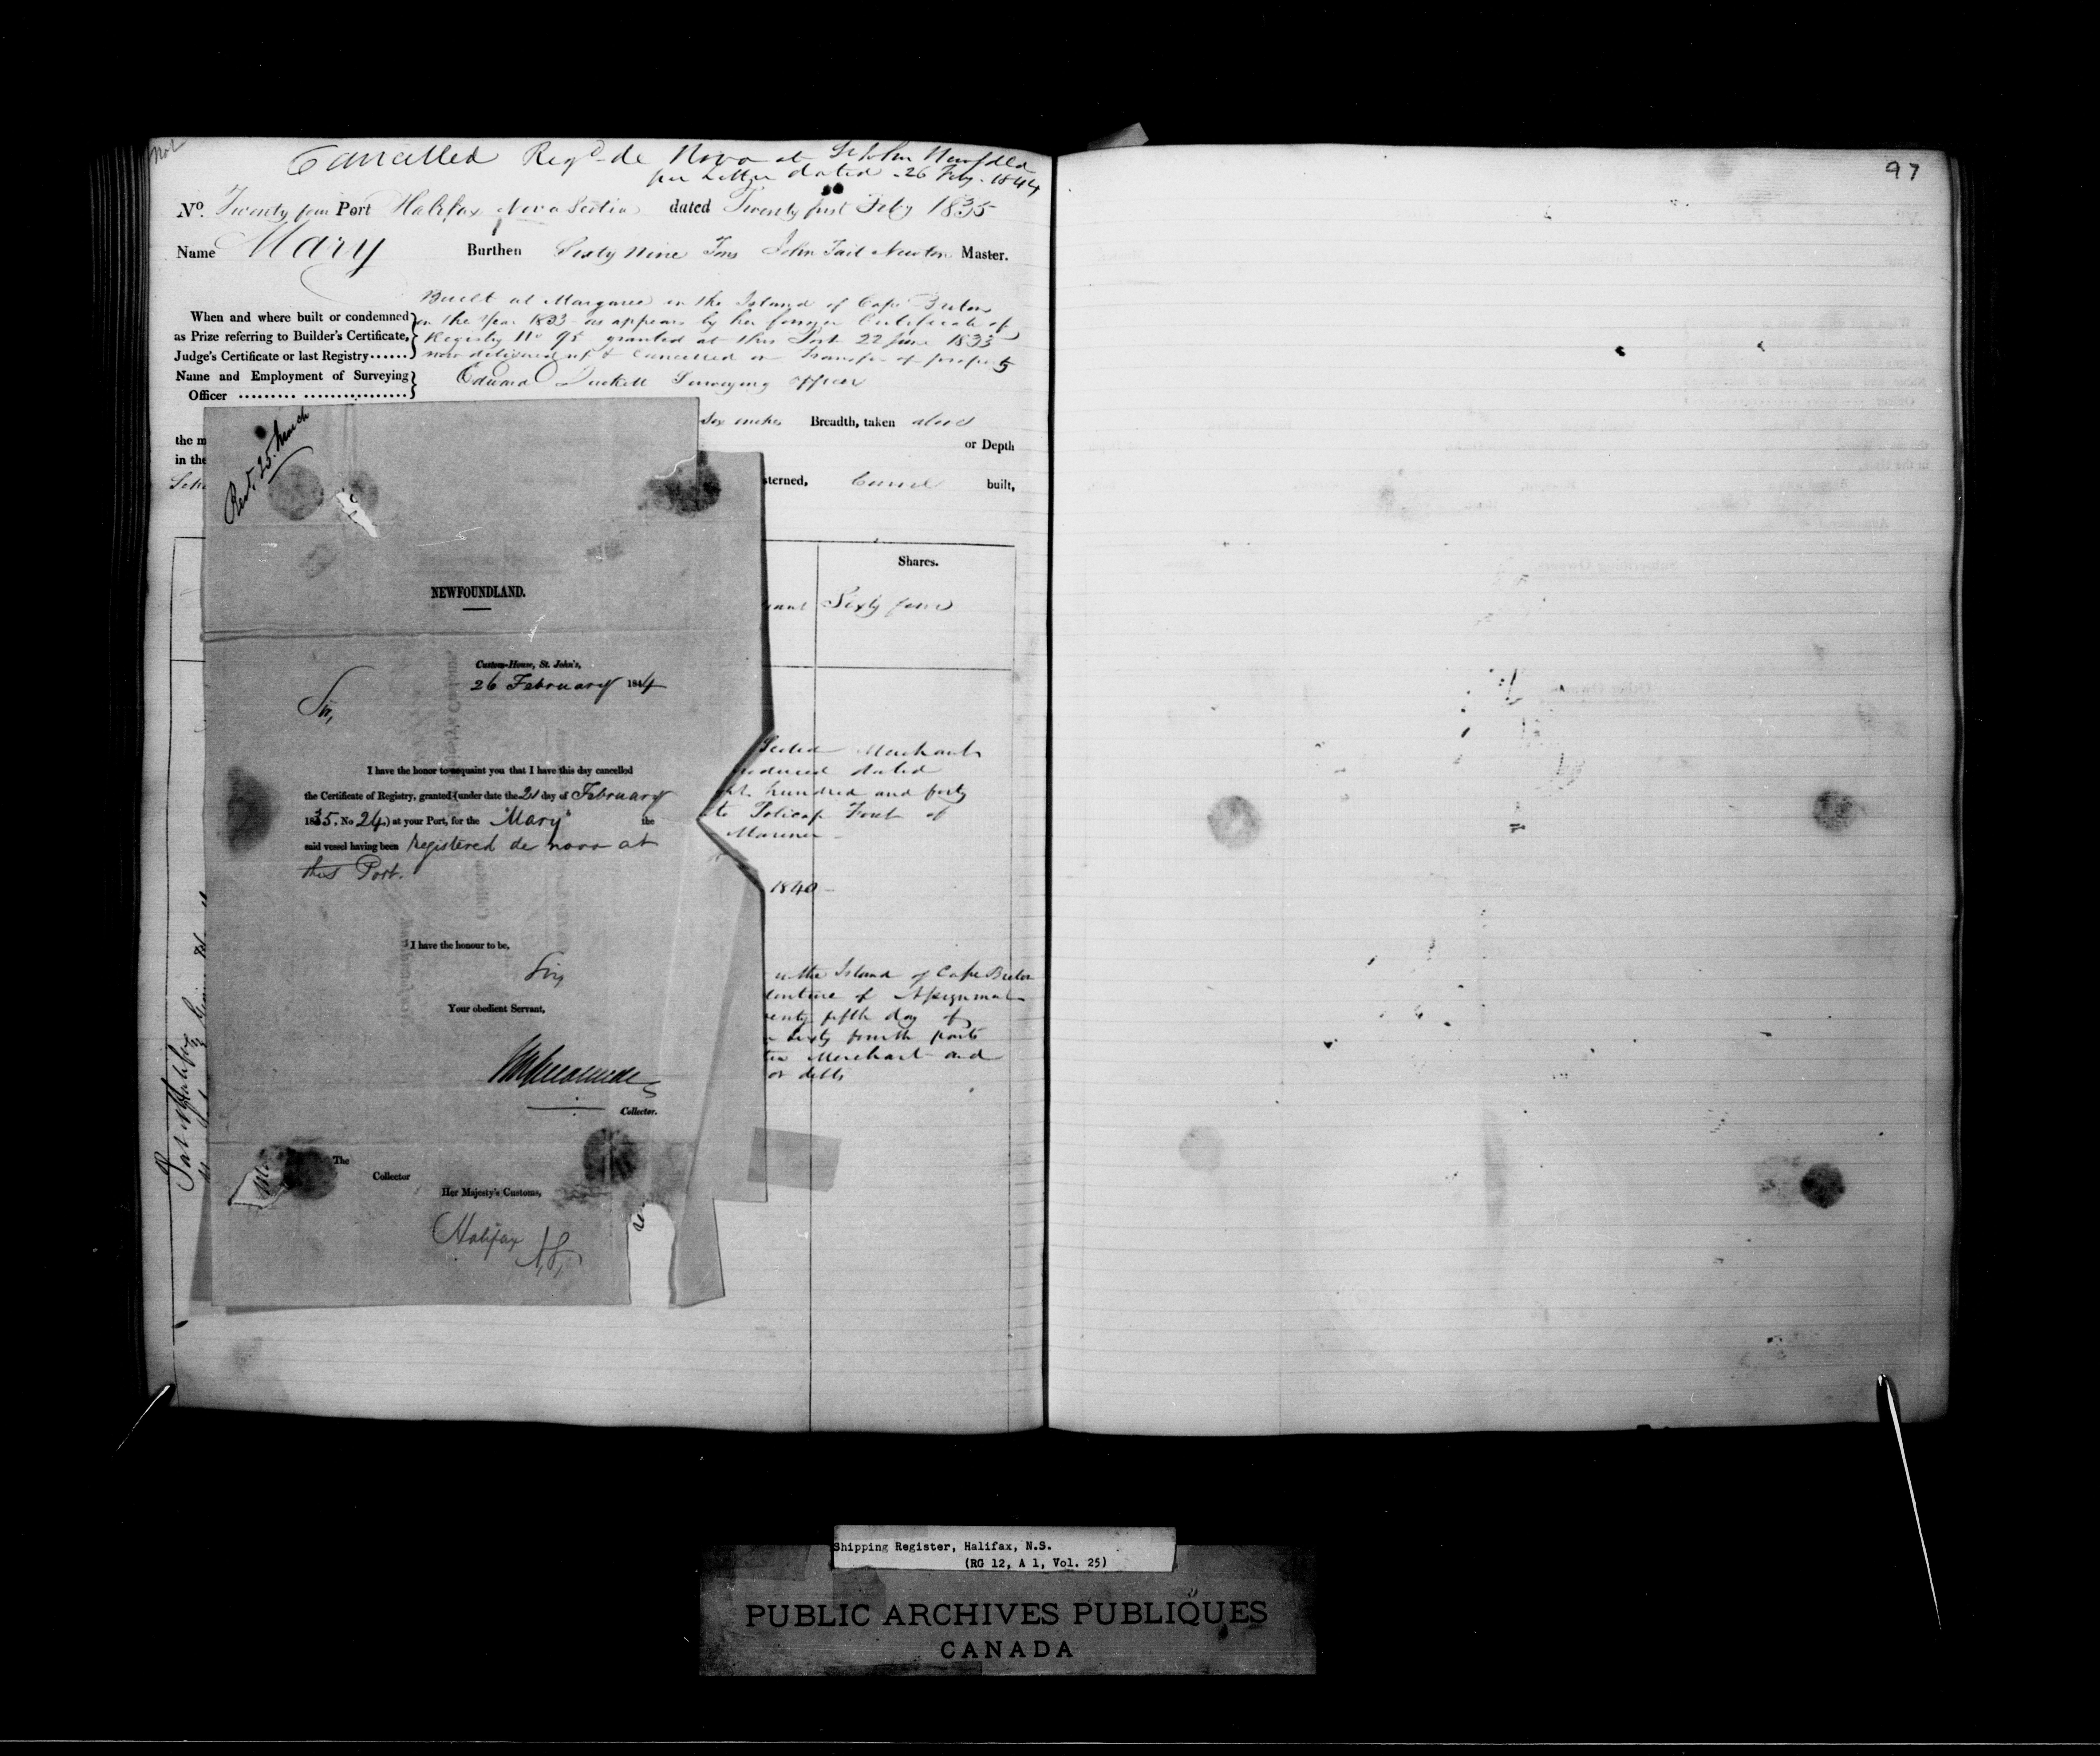 Cancelled Regd de Novo at St John Newfdld
per Letter dated 26 Feby 1844
No. Twenty four Port Halifax Nova Scotia dated Twenty first Feby 1835
Name Mary Burthen Sixty Nine Tons John Newton Master.
Built at Margaree in the Island of Cape Breton
When and where built or condemned in the Year 1833 as appears by her former Certificate of
as Prize referring to Builder's Certificate, Registry No 95 granted at this Port 22 June 1833
Judge's Certificate or last Registry...... now delivered up & Cancelled on transfer of property
Name and Employment of Surveying Edward Duckett Surveying officer
Officer
Six inches Breadth, taken above
the m
or Depth
in the
Scho
sterned, Carvel built,
Shares.
Sixty four
Merchants
produced dated
hundred and forty
to of
Mariner
1840
in the Island of Cape Breton
of Assignment
twenty fifth day of
sixty fourth parts
Merchant and
or debts
Port of Halifax
Recd. 25 March
NEWFOUNDLAND.
Custom-House, St. John's,
26 February 1844
Sir,
I have the honor to acquaint you that I have this day cancelled
the Certificate of Registry, granted (under date the 21 day of February
1835. No 24.) at your Port, for the "Mary" the
said vessel having been registered de novo at
this Port.
I have the honour to be,
Sir,
Your obedient Servant,
Collector.
The
Collector
Her Majesty's Customs,
Halifax
N.S.
97
Shipping Register, Halifax, N.S.
(RG 12, A 1, Vol. 25)
PUBLIC ARCHIVES PUBLIQUES
CANADA